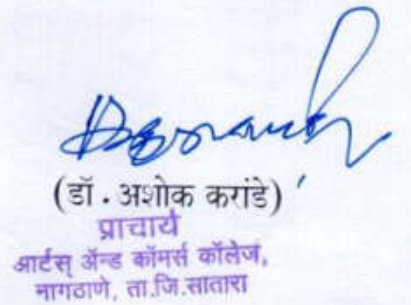 (डॉ. अशोक करांडे)
प्राचार्य
आर्टस् ॲन्ड कॉमर्स कॉलेज,
नागठाणे, ता.जि.सातारा